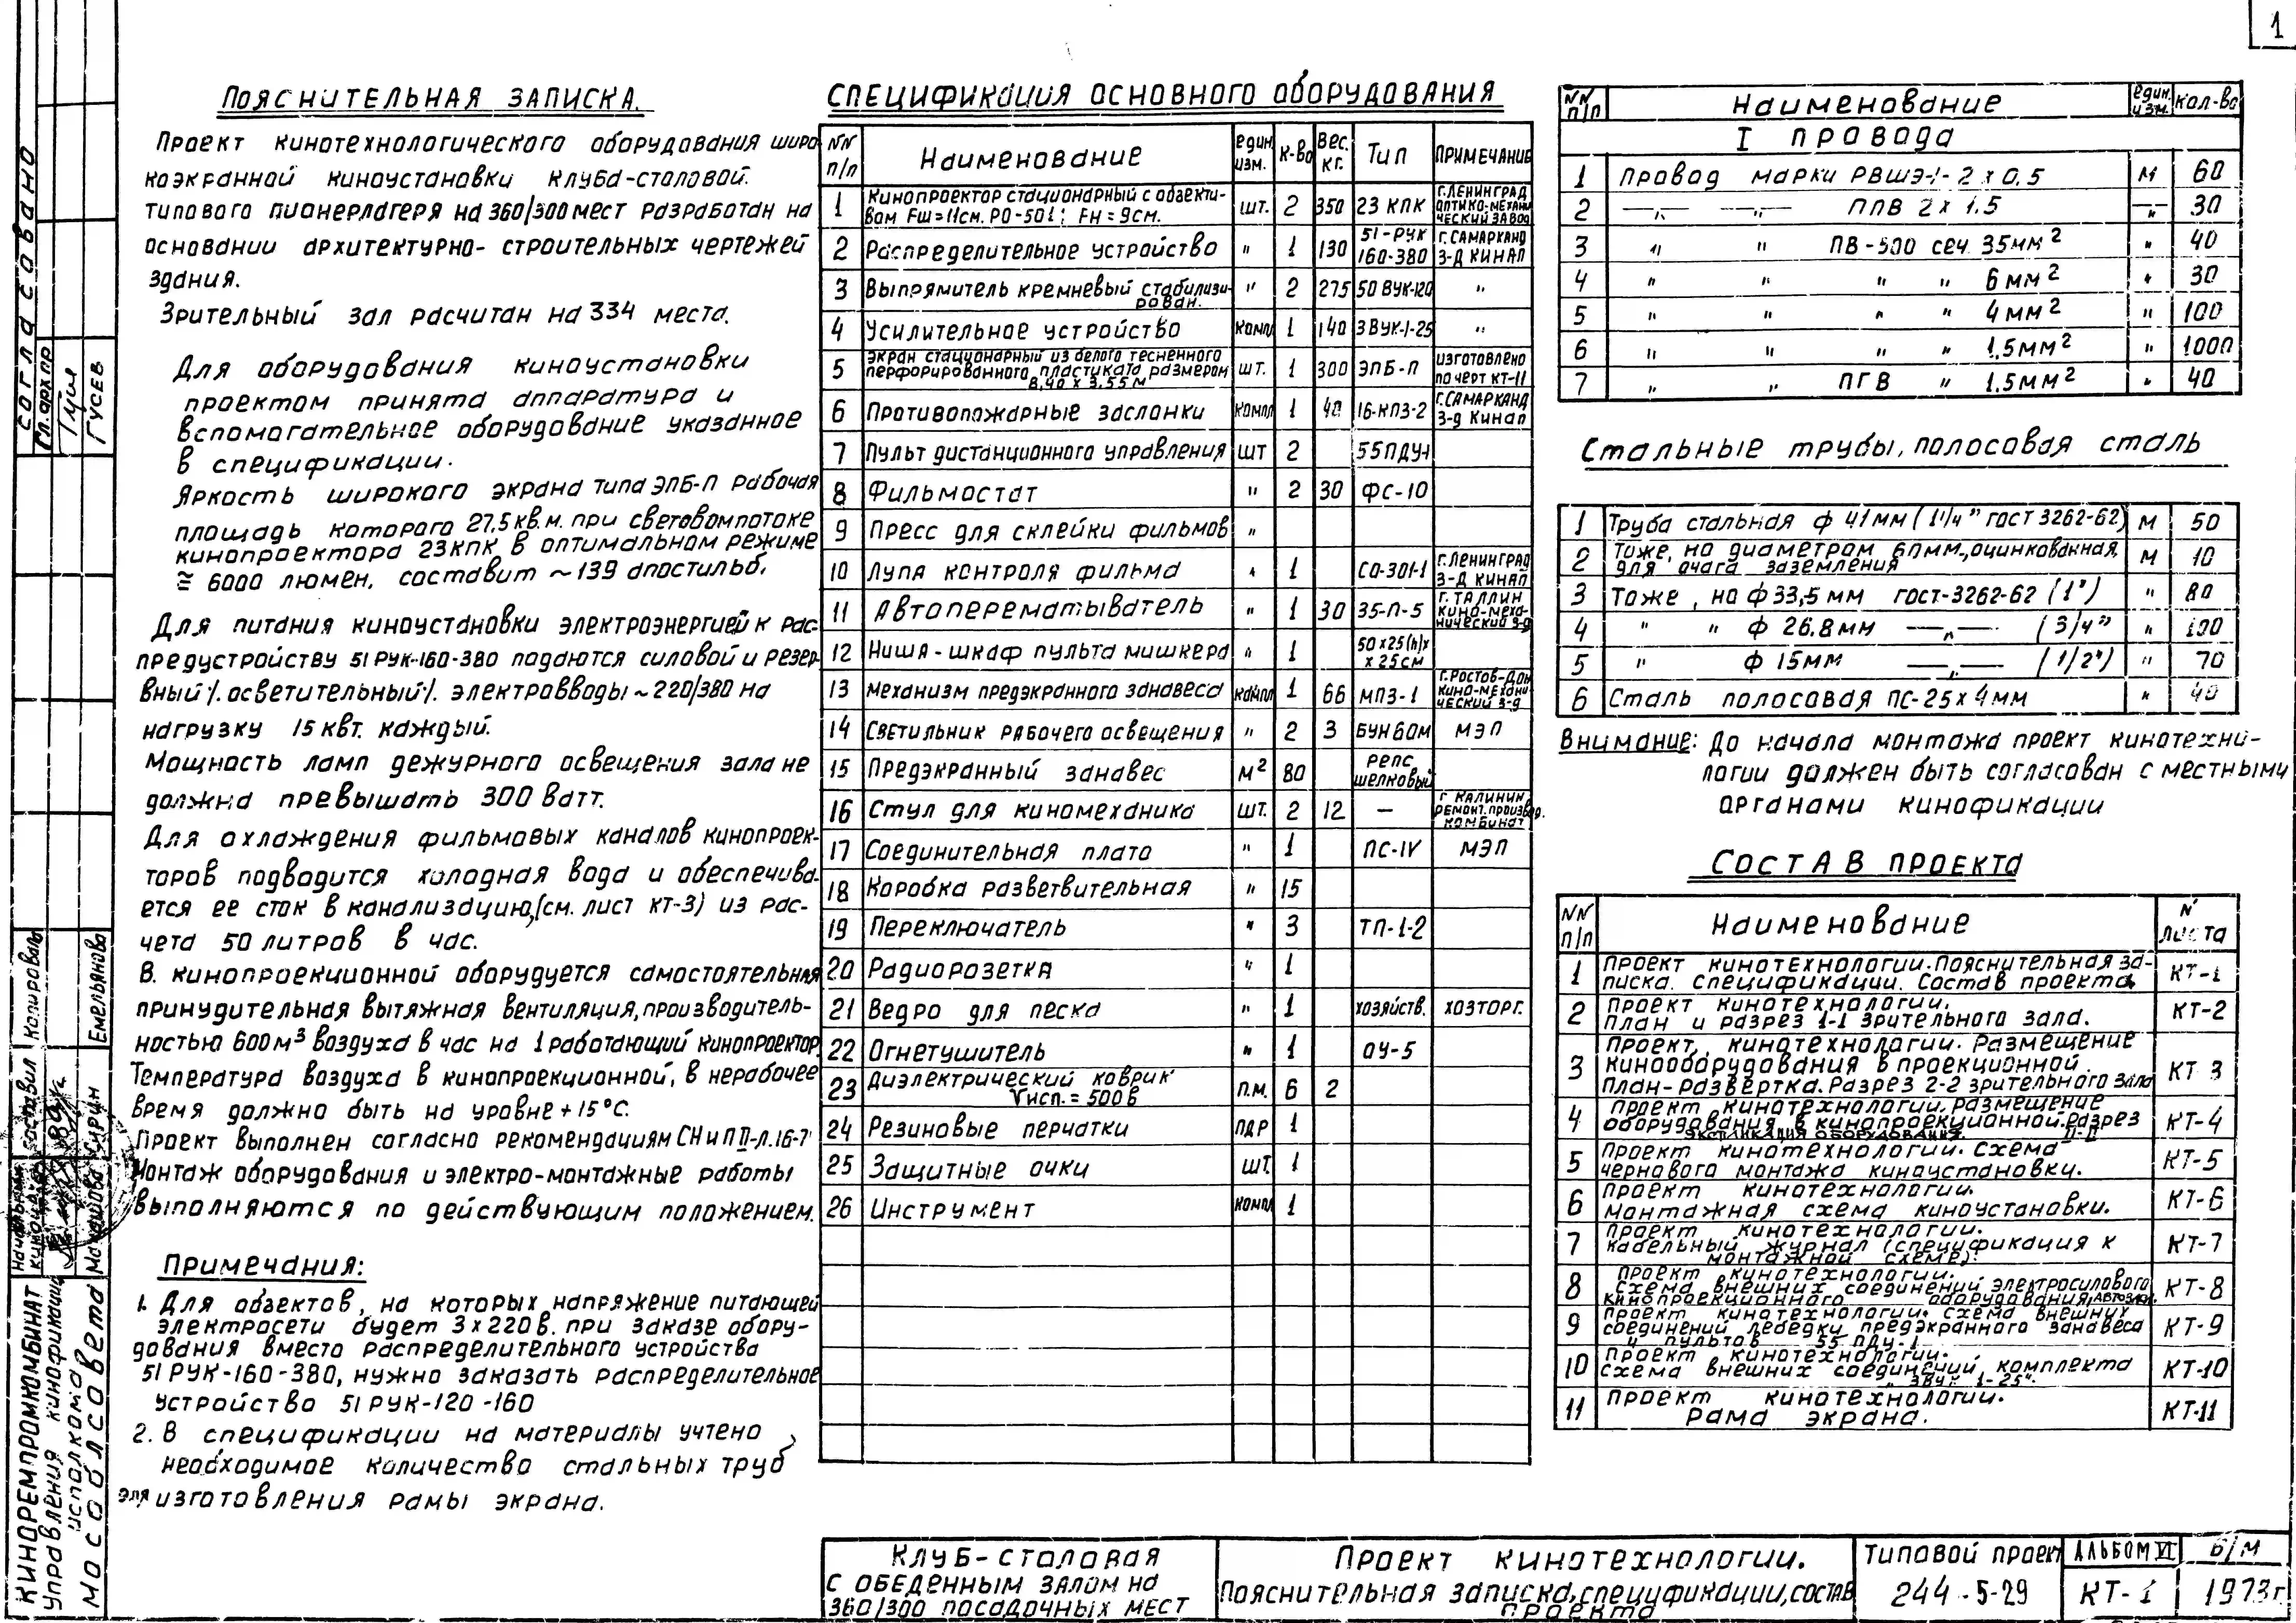 1
Пояснительная записка.
Проект кинотехнологического оборудования широ
коэкранной киноустановки клуба-столовой.
типового пионерлагеря на 360/300 мест разработан на
основании архитектурно- строительных чертежей
здания.
Зрительный зал расчитан на 334 места.
Для оборудования киноустановки
проектом принята аппаратура и
вспомагательное оборудование указанное
в спецификации.
Яркость широкого экрана типа ЭПБ-П рабочая
площадь которого 27,5 кв.м. при световом потоке
кинопроектора 23КПК в оптимальном режиме
≅ 6000 люмен, составит ~139 апостильб.
Для питания киноустановки электроэнергией к рас-
предустройству 51 РУК-160-380 подаются силовой и резер-
вный /. осветительный /. электровводы ~220/380 на
нагрузку 15 квт. каждый.
Мощность ламп дежурного освещения зала не
должна превышать 300 Ватт.
Для охлаждения фильмовых каналов кинопроек-
торов подводится холодная вода и обеспечива-
ется ее сток в канализацию, (см. лист КТ-3) из рас-
чета 50 литров в час.
В. кинопроекционной оборудуется самостоятельная
принудительная вытяжная вентиляция, производитель-
ностью 600 м³ воздуха в час на 1 работающий кинопроектор
Температура воздуха в кинопроекционной, в нерабочее
время должно быть на уровне +15°С.
Проект выполнен согласно рекомендациям СН и П II-Л.16-7
Монтаж оборудования и электро-монтажные работы
выполняются по действующим положением.
Примечания:
1. Для объектов, на которых напряжение питающей
электросети будет 3х220 в. при заказе обору-
дования вместо распределительного устройства
51 РУК-160-380, нужно заказать распределительное
устройство 51 РУК-120-160
2. В спецификации на материалы учтено
необходимое количество стальных труб
для изготовления рамы экрана.
Спецификация основного оборудования
NN п/п Наименование един. изм. к-во Вес. кг. Тип Примечание
1 Кинопроектор стационарный с объекти- вом Fш=11см. РО-501; Fн=9см. шт. 2 350 23 КПК г.Ленинград оптико-механический завод
2 Распределительное устройство " 1 130 51-РУК 160-380 г.Самарканд з-д КИНАП
3 Выпрямитель кремневый стабилизи- рован. " 2 275 50 ВУК-120 "
4 Усилительное устройство компл 1 140 ЗВУК-1-25 "
5 Экран стационарный из белого тесненного перфорированного пластиката размером 8,40 х 3,55 м шт. 1 300 ЭПБ-П изготовлено по черт КТ-11
6 Противопожарные заслонки компл 1 40 16-КПЗ-2 г.Самарканд з-д Кинап
7 Пульт дистанционного управления шт 2 55ПДУ-1
8 Фильмостат " 2 30 ФС-10
9 Пресс для склейки фильмов "
10 Лупа контроля фильма " 1 СО-301-1 г.Ленинград з-д КИНАП
11 Автоперематыватель " 1 30 35-П-5 г. Таллин кино-механический з-д
12 Ниша-шкаф пульта микшера " 1 50х25(h)х х25см
13 Механизм предэкранного занавеса компл 1 66 МПЗ-1 г.Ростов-Дон кино-механический з-д
14 Светильник рабочего освещения " 2 3 БУН60М МЭП
15 Предэкранный занавес м² 80 репс шелковый
16 Стул для киномеханика шт. 2 12 — г Калинин ремонт. произвд. комбинат
17 Соединительная плата " 1 ПС-IV МЭП
18 Коробка разветвительная " 15
19 Переключатель " 3 ТП-1-2
20 Радиорозетка " 1
21 Ведро для песка " 1 хозяйств. хозторг.
22 Огнетушитель " 1 ОУ-5
23 Диэлектрический коврик Vисп.=500в п.м. 6 2
24 Резиновые перчатки пар 1
25 Защитные очки шт. 1
26 Инструмент компл 1
NN п/п Наименование един. изм. кол-во
I провода
1 Провод марки РВШЭ-1-2х0.5 м 60
2 —"— —"— ППВ 2х1.5 —"— 30
3 " " ПВ-500 сеч. 35мм² " 40
4 " " " " 6мм² " 30
5 " " " " 4мм² " 100
6 " " " " 1,5мм² " 1000
7 " " ПГВ " 1.5мм² " 40
Стальные трубы, полосовая сталь
1 Труба стальная ф 41мм (1 1/4" гост 3262-62) м 50
2 Тоже, но диаметром 60мм., оцинкованная, для очага заземления м 10
3 Тоже, но ф 33,5 мм гост-3262-62 (1") " 80
4 " " ф 26.8мм —"— (3/4") " 100
5 " ф 15мм —"— (1/2") " 70
6 Сталь полосовая ПС-25х4мм " 40
Внимание: До начала монтажа проект кинотехно-
логии должен быть согласован с местными
органами кинофикации
Состав проекта
NN п/п Наименование N листа
1 Проект кинотехнологии. Пояснительная за- писка. Спецификации. Состав проекта. КТ-1
2 Проект кинотехнологии. План и разрез 1-1 зрительного зала. КТ-2
3 Проект, кинотехнологии. Размещение кинооборудования в проекционной. План-развертка. Разрез 2-2 зрительного зала КТ 3
4 Проект кинотехнологии. Размещение оборудования в кинопроекционной. Разрез II-II экспликация оборудования. КТ-4
5 Проект кинотехнологии. Схема чернового монтажа киноустановки. КТ-5
6 Проект кинотехнологии. Монтажная схема киноустановки. КТ-6
7 Проект кинотехнологии. Кабельный журнал (спецификация к монтажной схеме). КТ-7
8 Проект кинотехнологии. Схема внешних соединений электросилового кинопроекционного оборудования, КТ-8
9 Проект кинотехнологии. схема внешних соединений лебедки предэкранного занавеса и пультов 55 ПДУ-1 КТ-9
10 Проект кинотехнологии. Схема внешних соединений комплекта "Звук 1-25". КТ-10
11 Проект кинотехнологии. Рама экрана. КТ-11
Клуб-столовая
с обеденным залом на
360/300 посадочных мест
Проект кинотехнологии.
Пояснительная записка, спецификации, состав
проекта
Типовой проект
244-5-29
Альбом VI
Б/М
КТ-1
1973г.
Согласовано
Гл.арх.пр
Гусев
Копировала
Емельянова
составил
Гурин
Начальник
Киноремпромкомбинат
Управления кинофикации
исполкома
Мособлсовета